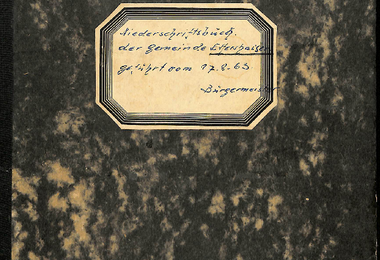 Niederschriftsbuch
der Gemeinde Ettenhausen
geführt vom 17.8.63
Bürgermeister